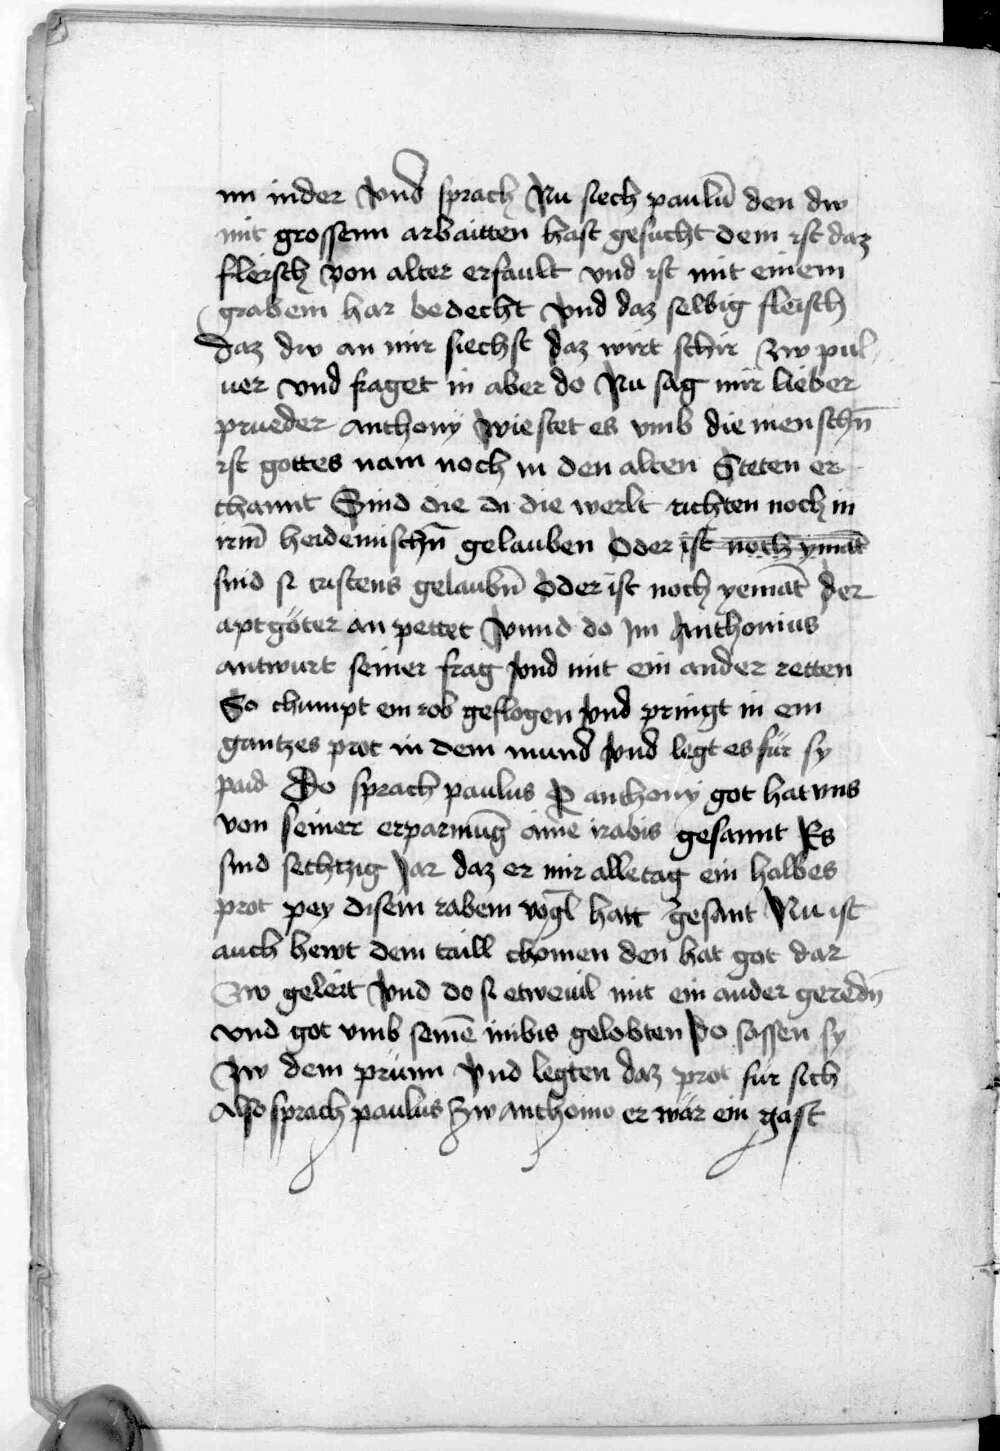 im inder vnd sprach Nu siech paulū den dw
mit grossenn arbaitten hast gesucht dem ist daz
fleisch von alter erfault vnd ist mit einem
grabem har bedecht vnd daz selbig fleisch
daz dw an mir siechst daz wirt schir zw pul
uer vnd fraget in aber do Nu sag mir lieber
prueder anthonÿ wie stet es vmb die menschn̄
ist gottes nam noch in den alten Steten er
channt Sind die da die werlt richten noch in
irm̄ heidemischn̄ gelauben oder ist noch ymāt
sind si cristens gelaubn̄ oder ist noch yemāt der
aptgöter an pettet vnnd do im Anthonius
antwurt seiner frag vnd mit ein ander retten
So chumpt ein rob geflogen vnd pringt in ein
gantzes prot in dem mund vnd legt es für sy
paid Do sprach paulus O anthonÿ got hat vns
von seiner erparmūg gesannt Es
sind sechtzig Jar daz er mir alletag ein halbes
prot pey disem rabem vōgl hatt gesant Nu ist
auch hewt dem taill chomen den hat got dar
zw geleit vnd do si etweuil mit ein ander geredn̄
vnd got vmb seinē imbis gelobten do sassen sy
zw dem prünn vnd legten daz prot fur sich
Also sprach paulus zw anthonio er wär ein gast